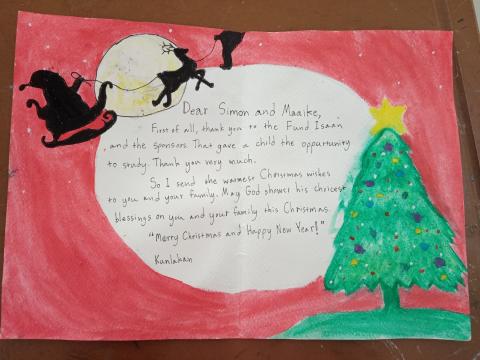 Dear Simon and Maaike,
First of all, thank you to the Fund Isaan
, and the sponsors. That gave a child the oppartunity
to study. Thank you very much.
So I send the warmest Christmas wishes
to you and your family. May God shower his choicest
blessings on you and your family this Christmas
"Merry Christmas and Happy New Year!"
Kanlahan